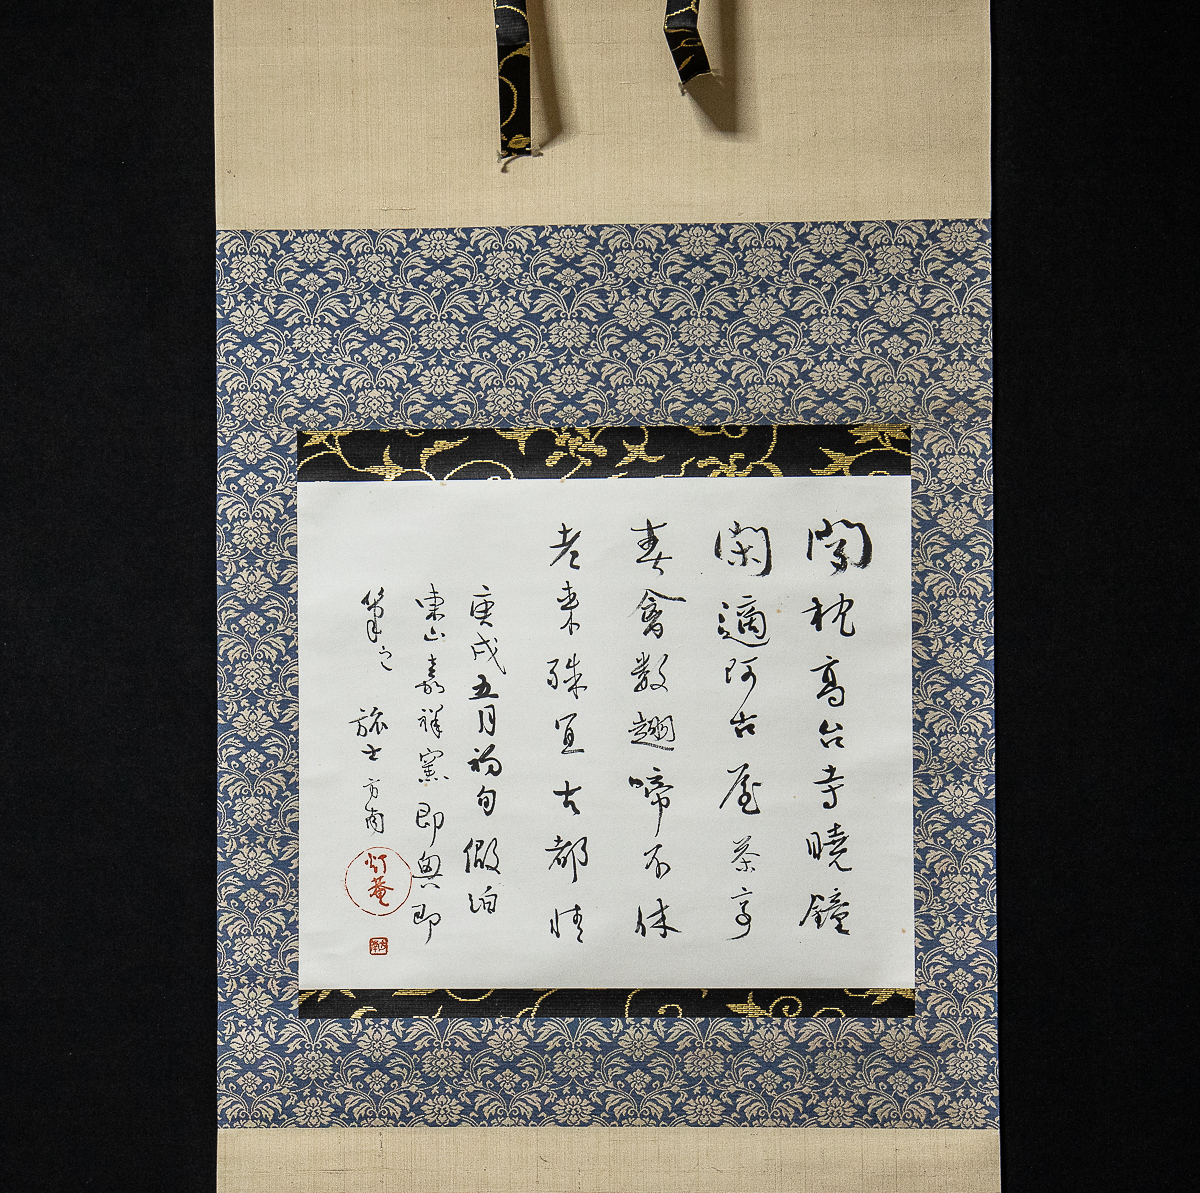 聞枕高台寺曉鐘
閑適阿古屋茶亭
春禽数啼不休
老来殊宜古都情
庚戌五月初旬假泊
東山嘉祥窯即興即
筆之 旅士 方南
灯菴